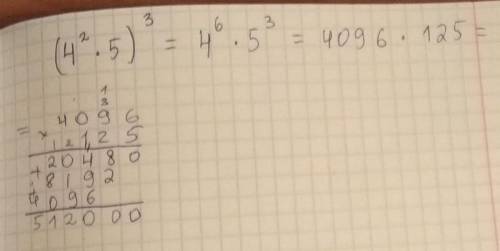 (4² · 5)³ = 4⁶ · 5³ = 4096 · 125 =
1
3
= 4096
× 125
1 2 1
20480
+ 8192
4096
512000